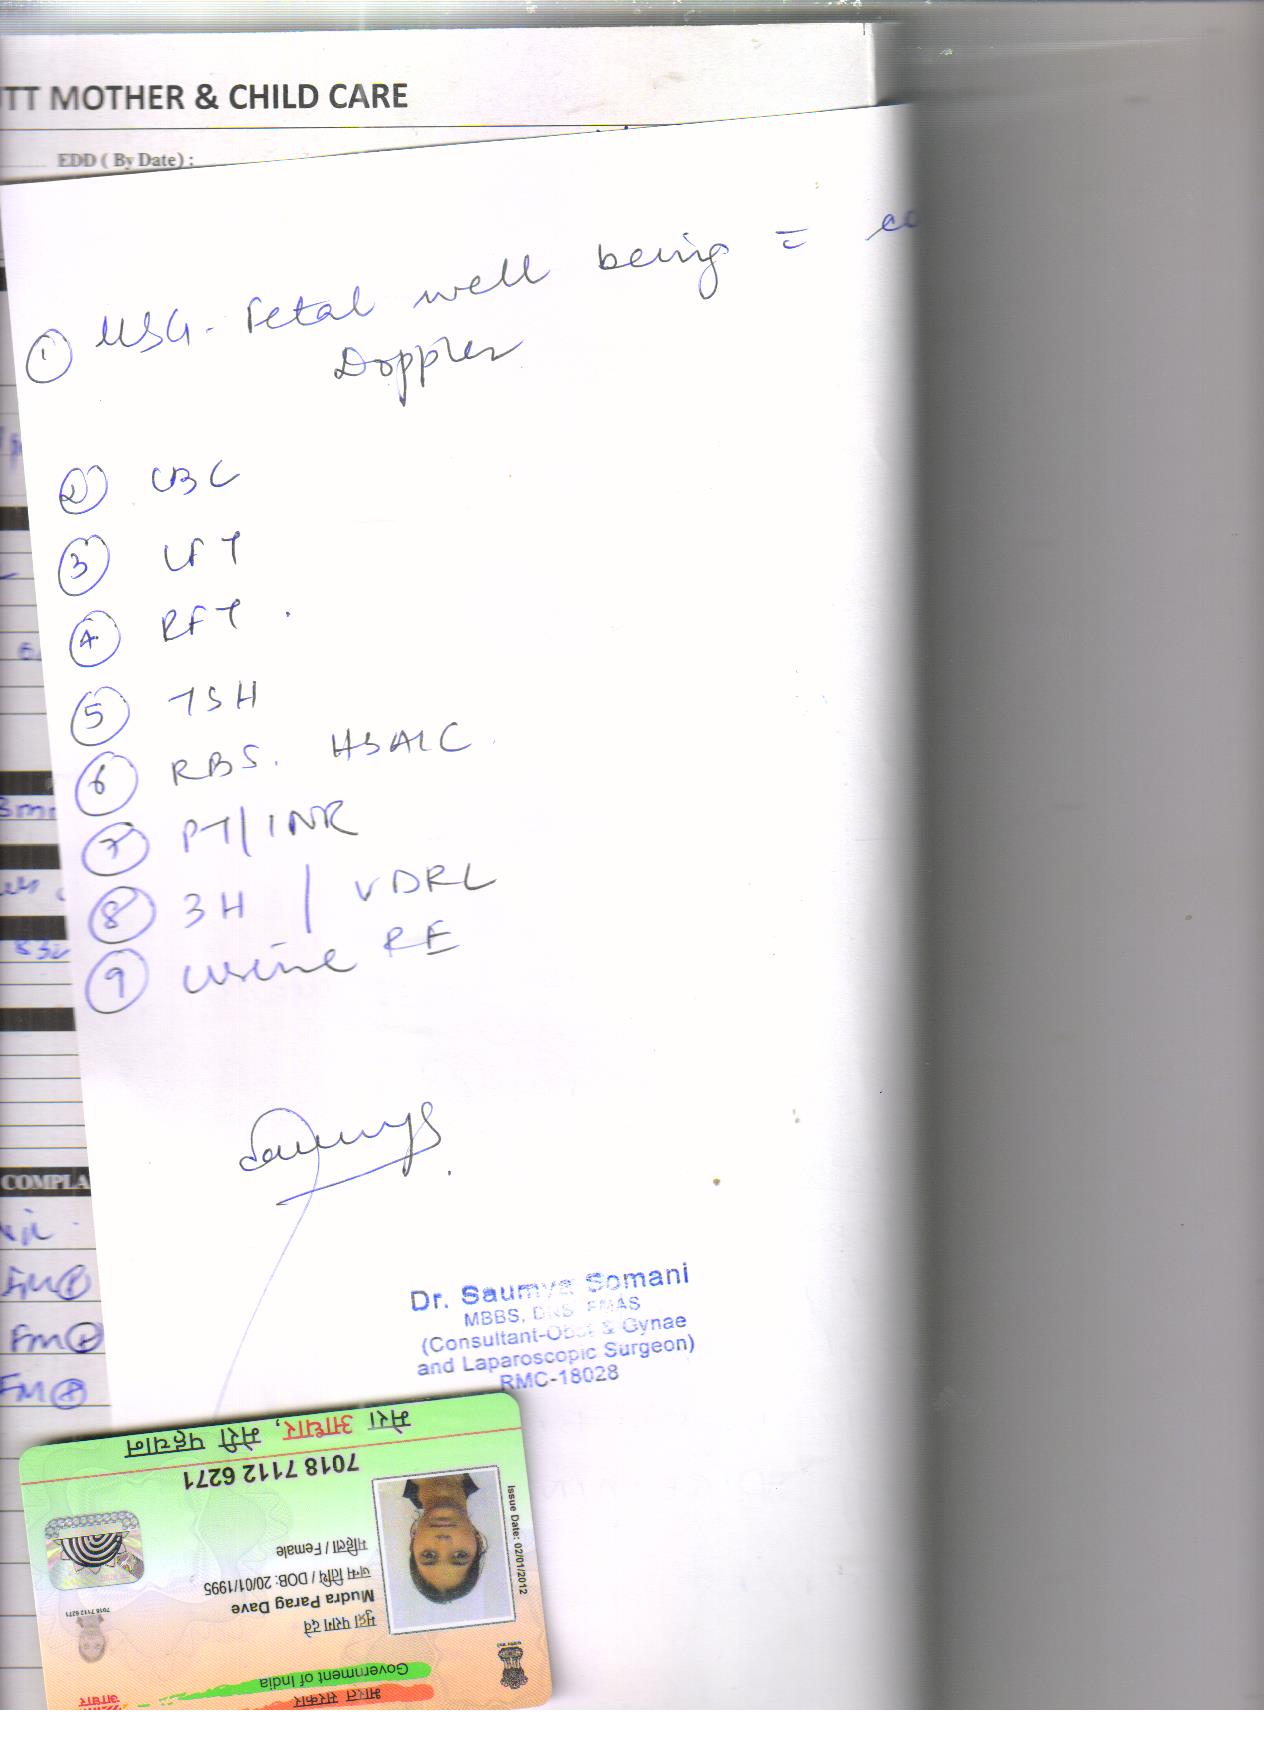 TT MOTHER & CHILD CARE
EDD ( By Date) :
① USG. Fetal well being = co
Doppler
② CBC
③ LFT
④ RFT .
⑤ TSH
⑥ RBS. HBA1C
⑦ PT/INR
⑧ 3H / VDRL
⑨ Urine RE
3m
83
COMPLA
Nil
FM
FM
FM
Saumya
Dr. Saumya Somani
MBBS, DNB, FMAS
(Consultant-Obst & Gynae
and Laparoscopic Surgeon)
RMC-18028
भारत सरकार
Government of India
आधार
मुद्रा पराग दवे
Mudra Parag Dave
जन्म तिथि / DOB: 20/01/1995
महिला / Female
Issue Date: 02/01/2012
7018 7112 6271
7018 7112 6271
मेरा आधार, मेरी पहचान